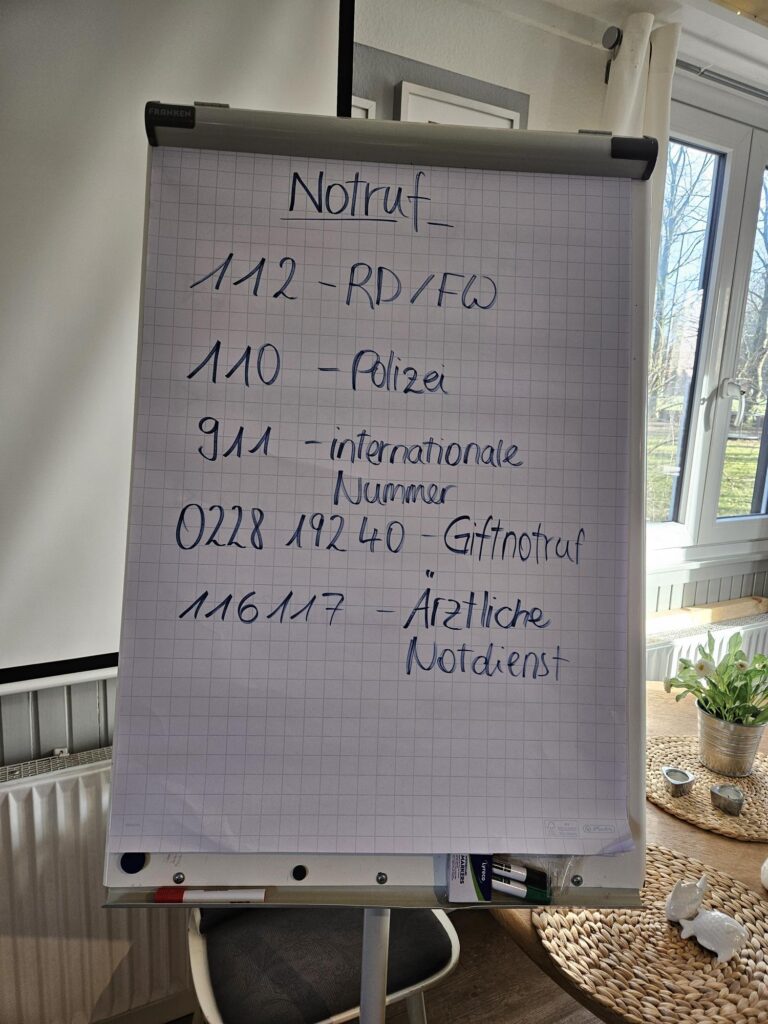 FRANKEN
Notruf
112 - RD/FW
110 - Polizei
911 - internationale
Nummer
0228 19240 - Giftnotruf
116117 - Ärztliche
Notdienst
lyreco